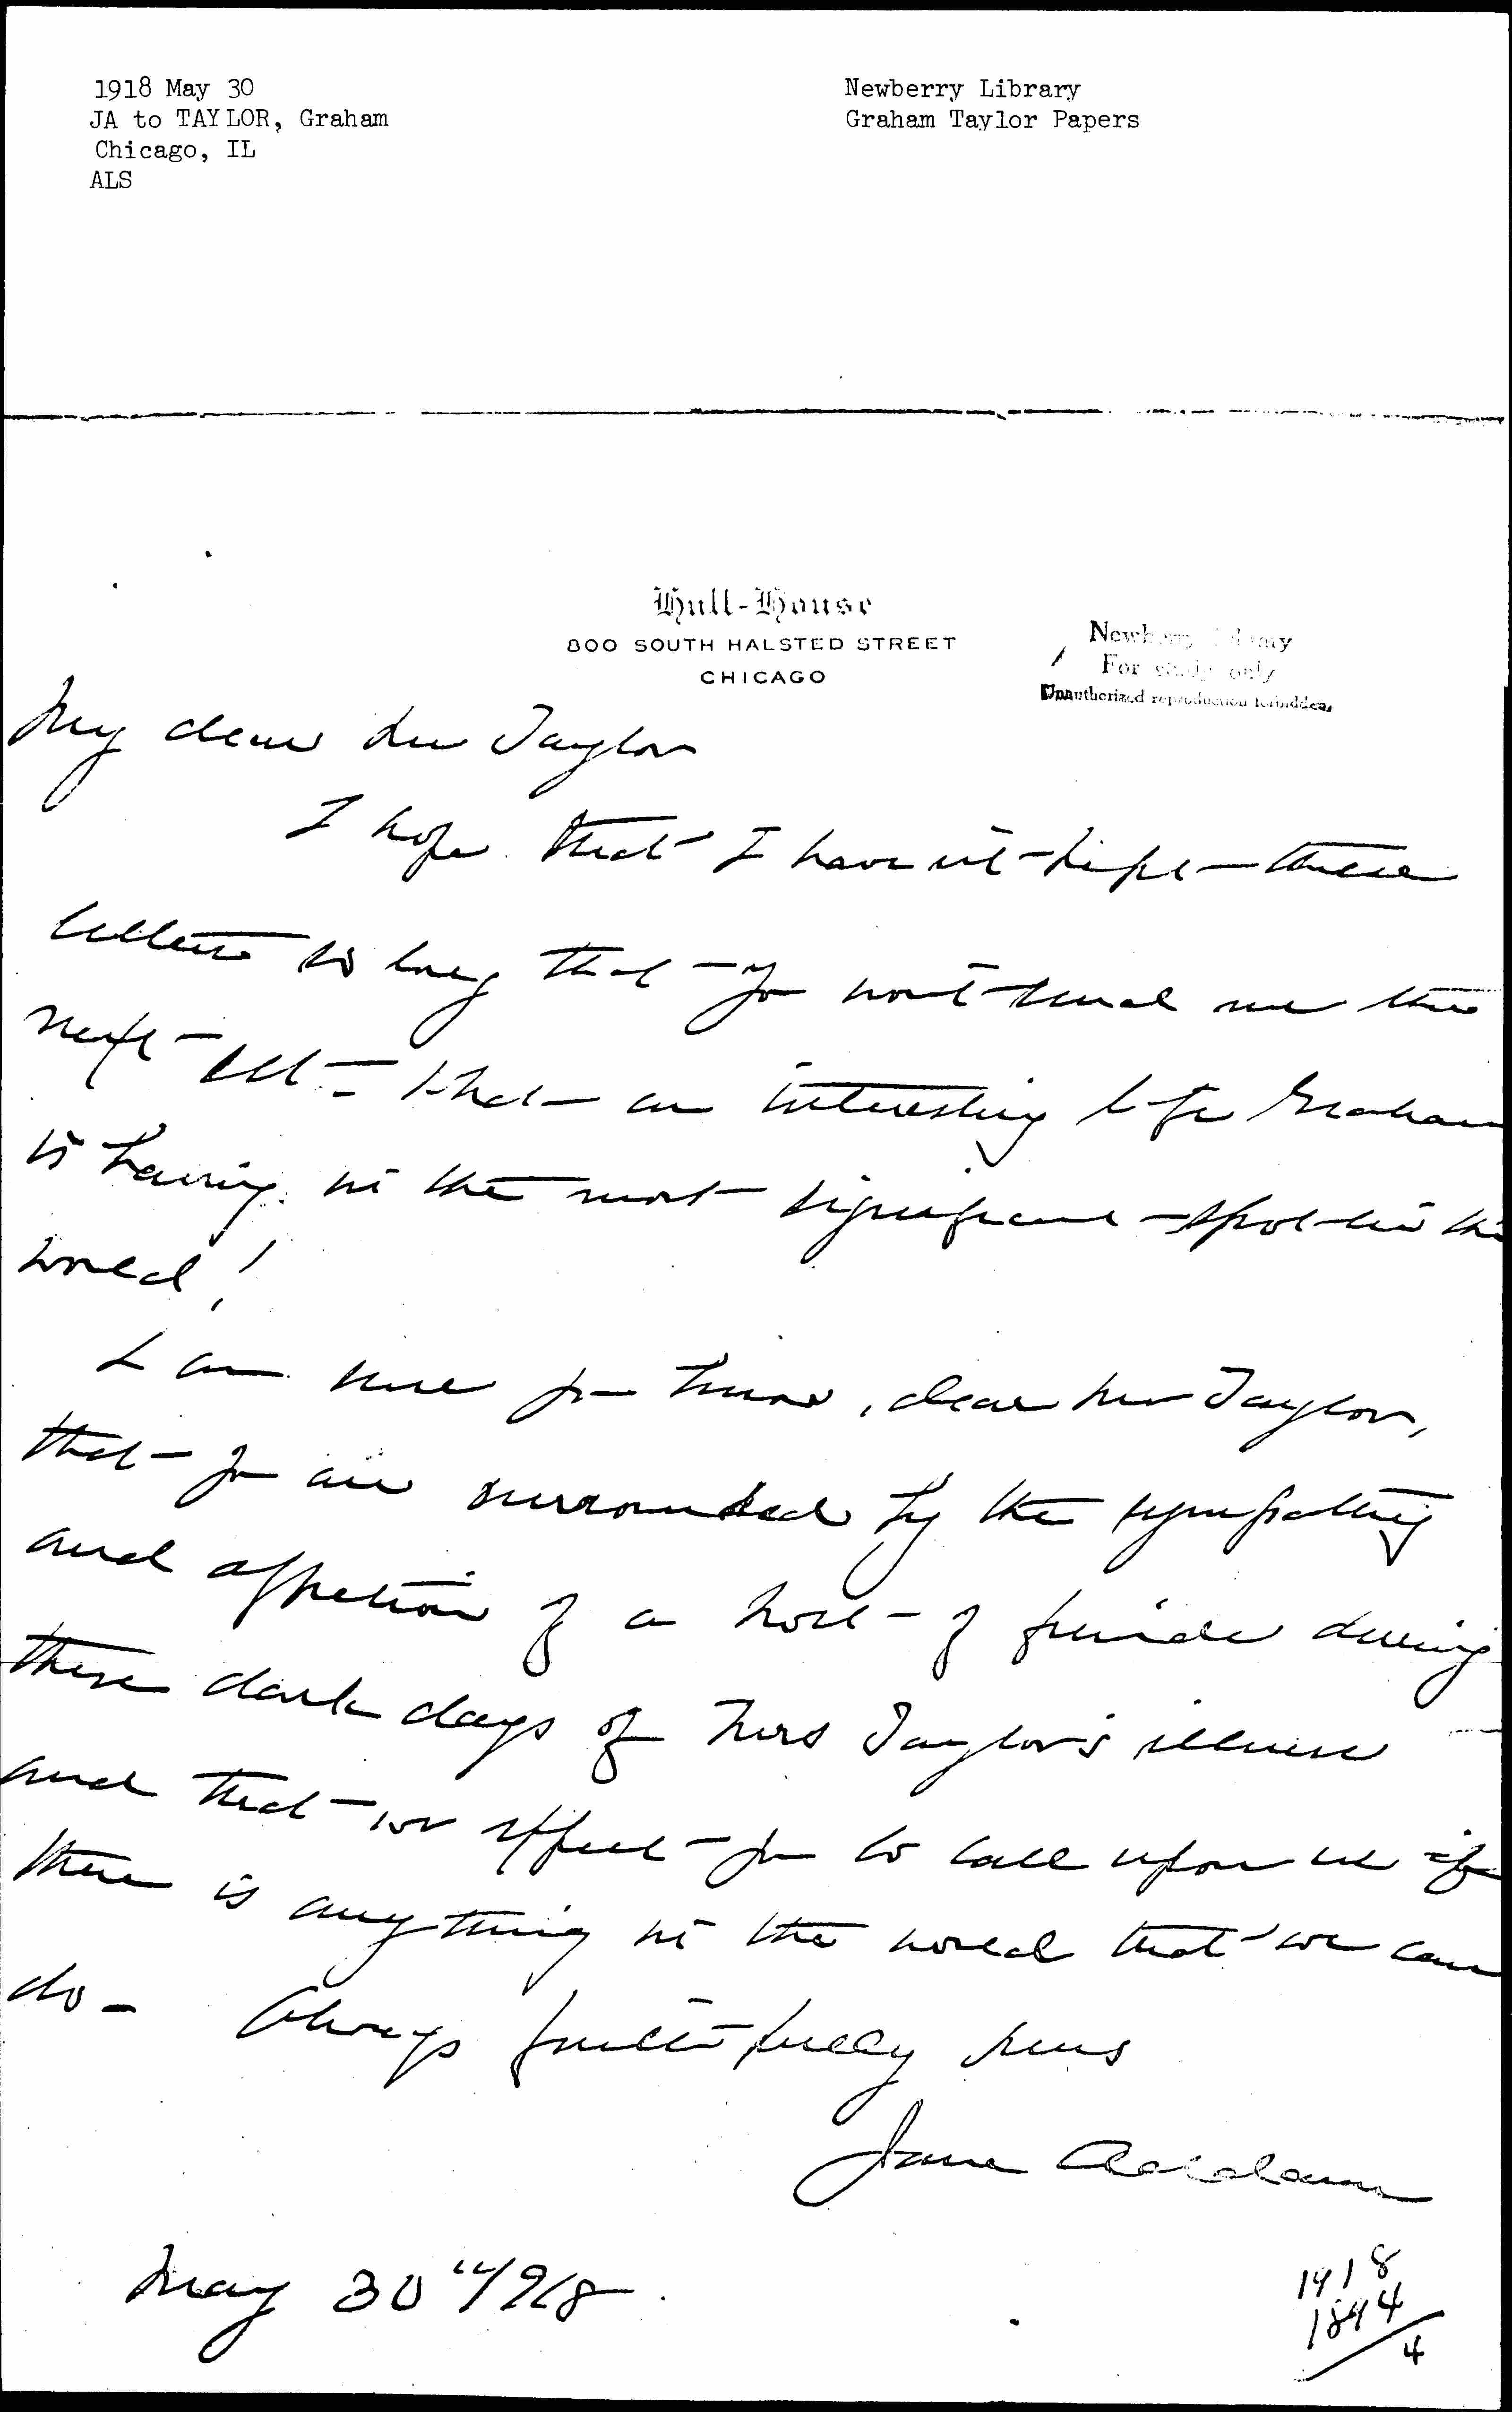 1918 May 30
JA to TAYLOR, Graham
Chicago, IL
ALS
Newberry Library
Graham Taylor Papers
Hull-House
800 SOUTH HALSTED STREET
CHICAGO
Newberry Library
For study only
Unauthorized reproduction forbidden.
My dear Mr Taylor
I hope that I have not kept these
letters so long that you won't send me the
next set – What an interesting life Graham
is having in the most significant spot in the
world!
I am sure you know, dear Mr Taylor,
that you are surrounded by the sympathy
and affection of a host of friends during
these dark days of Mrs Taylor's illness
and that we expect you to call upon us if
there is anything in the world that we can
do – Always faithfully yours
Jane Addams
May 30" 1918
1918
1894
4